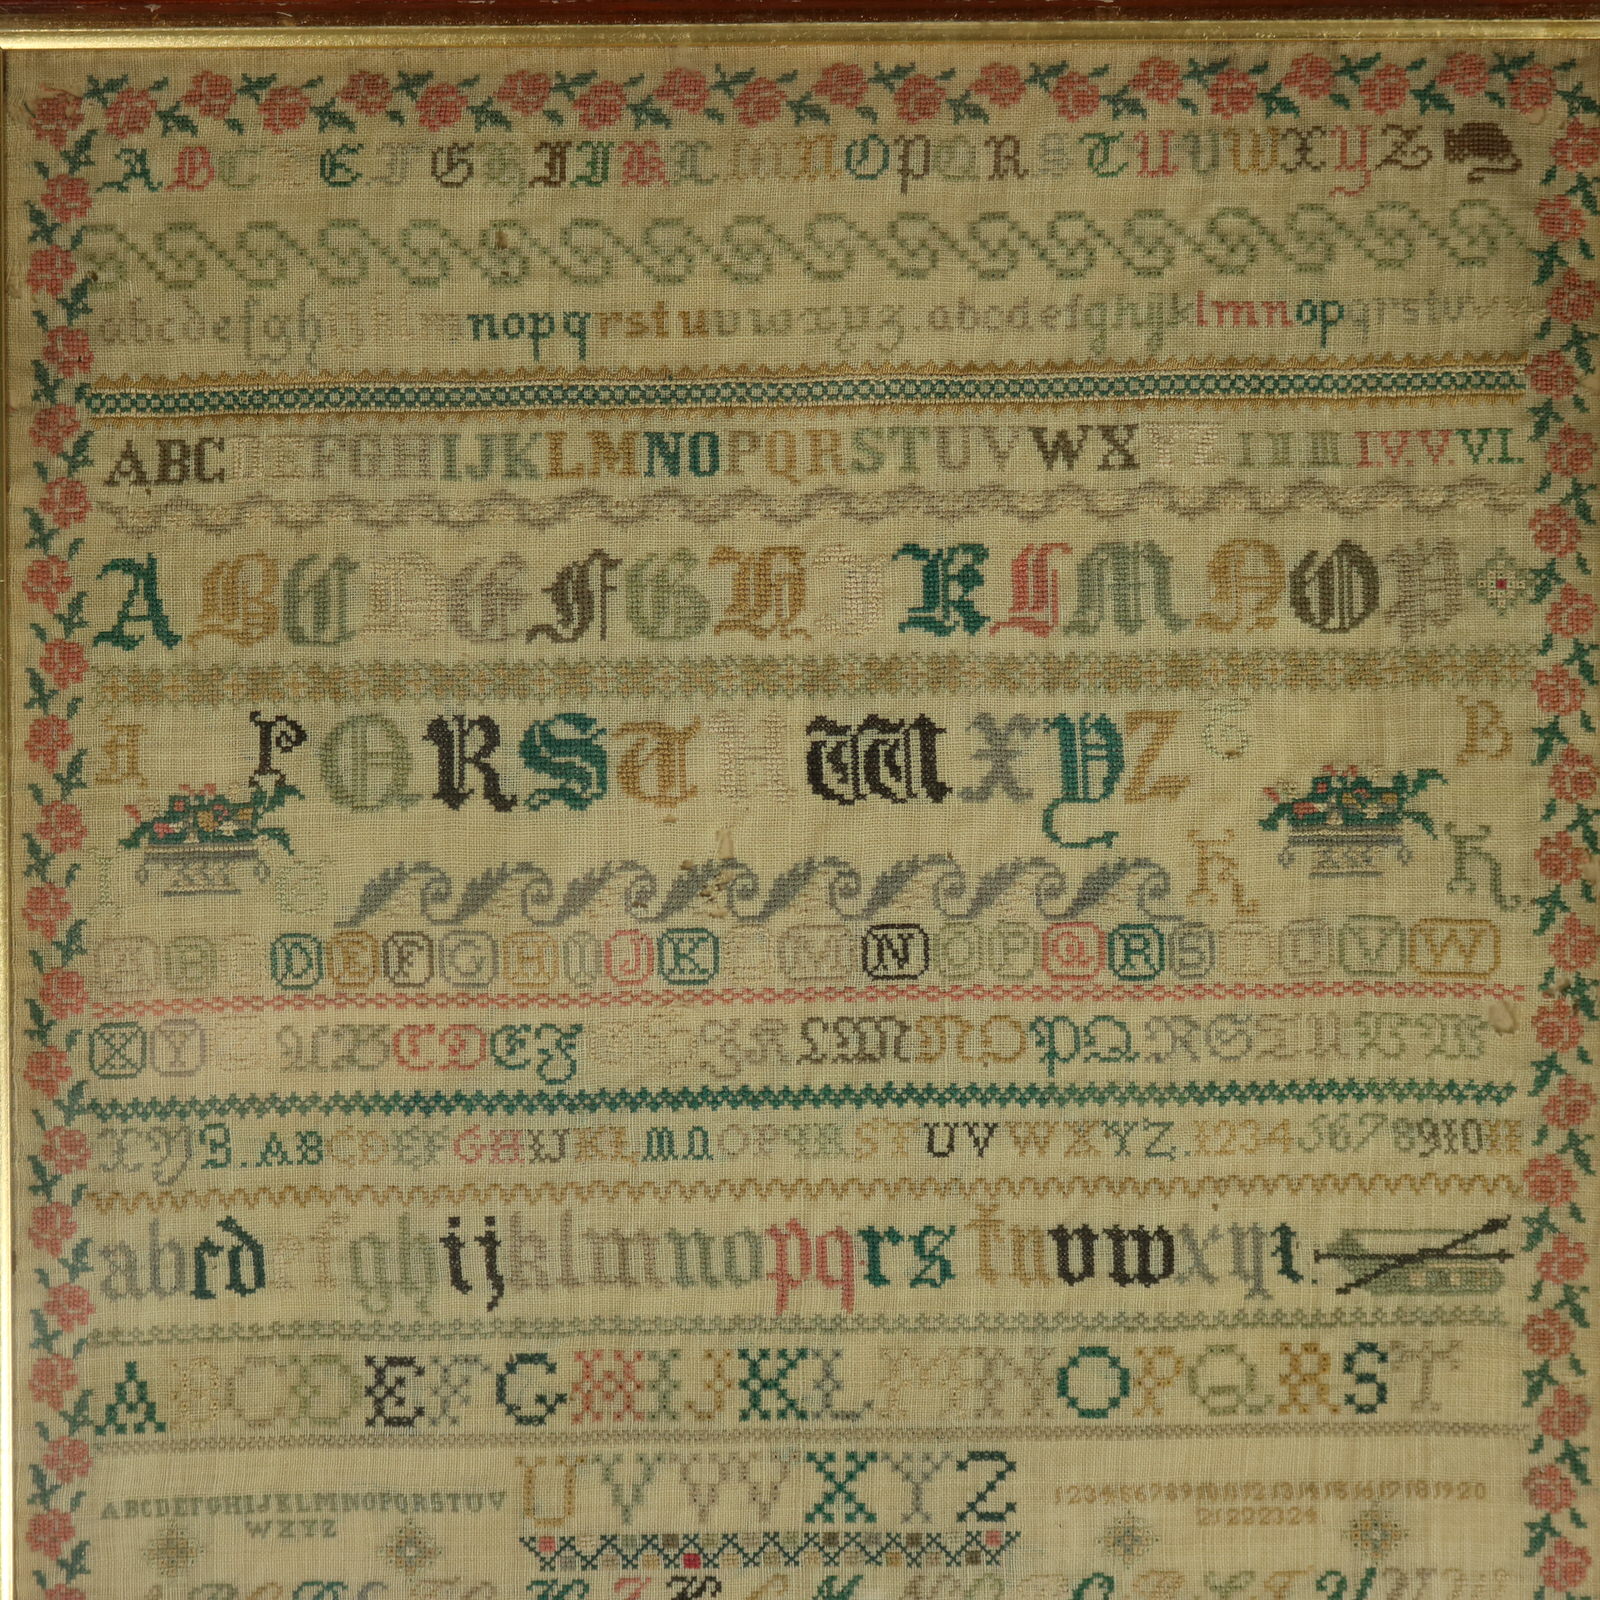 A B C D E F G H I J K L M N O P Q R S T U V W X Y Z
a b c d e f g h i j k l m n o p q r s t u v w x y z a b c d e f g h i j k l m n o p q r s t u v w
A B C D E F G H I J K L M N O P Q R S T U V W X Y Z I II III I.V. V. V.I.
A B C D E F G H I K L M N O P
A P Q R S T H W X Y Z T B
I G K K
A B C D E F G H I J K L M N O P Q R S T U V W
X Y Z A B C D E F G H J K L M N O P Q R S T U V W
X Y Z. A B C D E F G H I J K L M N O P Q R S T U V W X Y Z. 1 2 3 4 5 6 7 8 9 10 11
a b c d e f g h i j k l m n o p q r s t u v w x y z.
A B C D E F G H I J K L M N O P Q R S T
U V V V X Y Z
A B C D E F G H I J K L M N O P Q R S T U V
W X Y Z
1 2 3 4 5 6 7 8 9 10 11 12 13 14 15 16 17 18 19 20
21 22 23 24